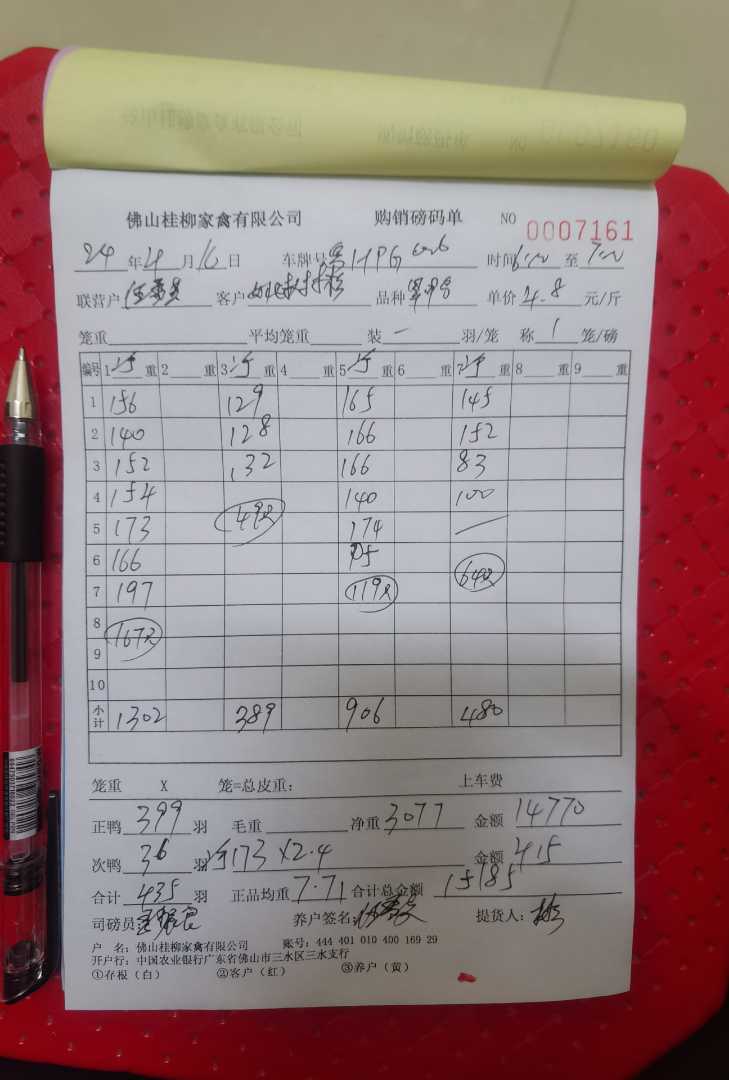 佛山桂柳家禽有限公司 购销磅码单 NO 0007161
24年4月16日 车牌号 时间6:00至7:00
联营户 客户 品种 单价4.8元/斤
笼重 平均笼重 装一羽/笼 称1笼/磅
编号 1净重 2重 3净重 4重 5净重 6重 7净重 8重 9重
1 156 129 165 145
2 140 128 166 152
3 152 132 166 83
4 154 140 100
5 173 49只 174
6 166 64只
7 197 119只
8 167只
9
10
小计 1302 389 906 480
笼重 X 笼=总皮重: 上车费
正鸭399羽 毛重 净重3077 金额14770
次鸭36羽 净173×2.4 金额415
合计435羽 正品均重7.71 合计总金额15185
司磅员 养户签名: 提货人:
户 名: 佛山桂柳家禽有限公司 账号: 444 401 010 400 169 29
开户行: 中国农业银行广东省佛山市三水区三水支行
①存根(白) ②客户(红) ③养户(黄)